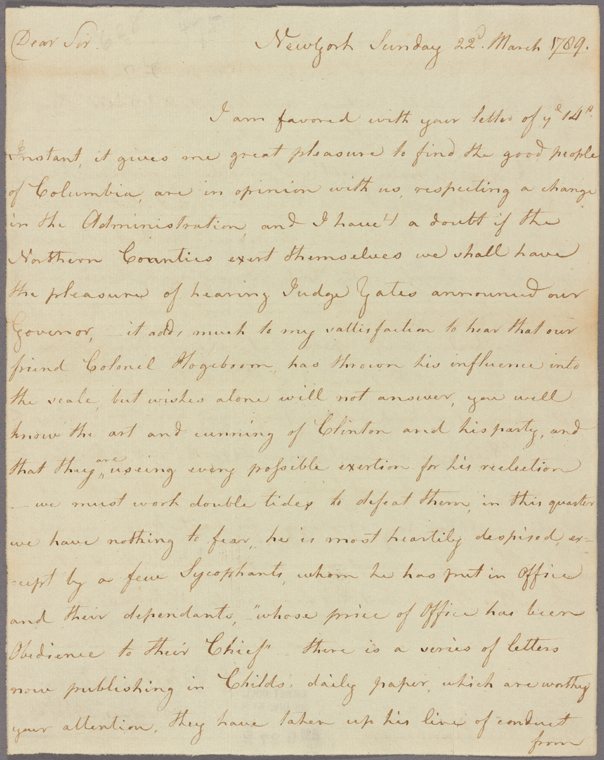 Dear Sir. NewYork Sunday 22d. March 1789.
I am favored with your letter of ye 14th
Instant, it gives me great pleasure to find the good people
of Columbia, are in opinion with us, respecting a change
in the Administration, and I have't a doubt if the
Northern Counties exert themselves we shall have
the pleasure of hearing Judge Yates announced our
Governor, it adds much to my sattisfaction to hear that our
friend Colonel Hogeboom, has thrown his influence into
the scale, but wishes alone will not answer, you well
know the art and cunning of Clinton and his party, and
that they are useing every possible exertion for his reelection
— we must work double tides to defeat them, in this quarter
we have nothing to fear, he is most heartily despised, ex-
-cept by a few Sycophants, whom he has put in Office
and their dependants, "whose price of Office has been
Obedience to their Chief" there is a series of letters
now publishing in Childs. daily paper, which are worthy
your attention, they have taken up his line of conduct
from